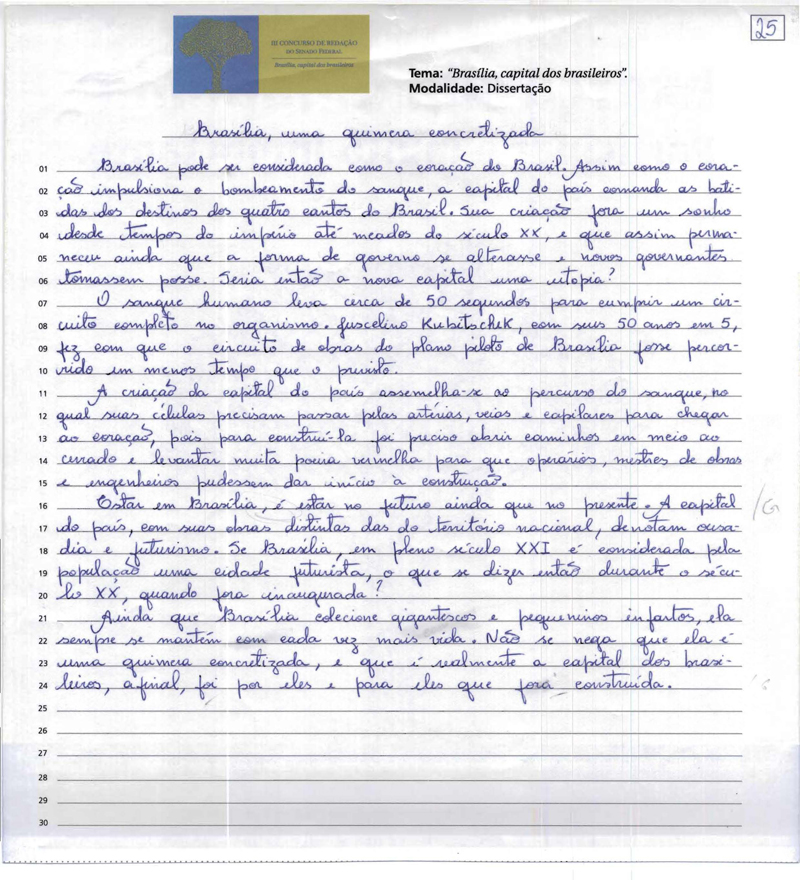 25
III CONCURSO DE REDAÇÃO
DO SENADO FEDERAL
Brasília, capital dos brasileiros
Tema: "Brasília, capital dos brasileiros".
Modalidade: Dissertação
Brasília, uma quimera concretizada
01 Brasília pode ser considerada como o coração do Brasil. Assim como o cora-
02 ção impulsiona o bombeamento do sangue, a capital do país comanda as bati-
03 das dos destinos dos quatro cantos do Brasil. Sua criação fora um sonho
04 desde tempos do império até meados do século XX, e que assim perma-
05 neceu ainda que a forma de governo se alterasse e novos governantes
06 tomassem posse. Seria então a nova capital uma utopia?
07 O sangue humano leva cerca de 50 segundos para cumprir um cir-
08 cuito completo no organismo. Juscelino Kubitschek, com seus 50 anos em 5,
09 fez com que o circuito de obras do plano piloto de Brasília fosse percor-
10 rido em menos tempo que o previsto.
11 A criação da capital do país assemelha-se ao percurso do sangue, no
12 qual suas células precisam passar pelas artérias, veias e capilares para chegar
13 ao coração, pois para construí-la foi preciso abrir caminhos em meio ao
14 cerrado e levantar muita poeira vermelha para que operários, mestres de obras
15 e engenheiros pudessem dar início à construção.
16 Estar em Brasília, é estar no futuro ainda que no presente. A capital
17 do país, com suas obras distintas das do território nacional, denotam ousa- /G
18 dia e futurismo. Se Brasília, em pleno século XXI é considerada pela
19 população uma cidade futurista, o que se dizer então durante o sécu-
20 lo XX, quando fora inaugurada?
21 Ainda que Brasília colecione gigantescos e pequeninos infartos, ela
22 sempre se mantém com cada vez mais vida. Não se nega que ela é
23 uma quimera concretizada, e que é realmente a capital dos brasi-
24 leiros, afinal, foi por eles e para eles que fora construída.
25
26
27
28
29
30